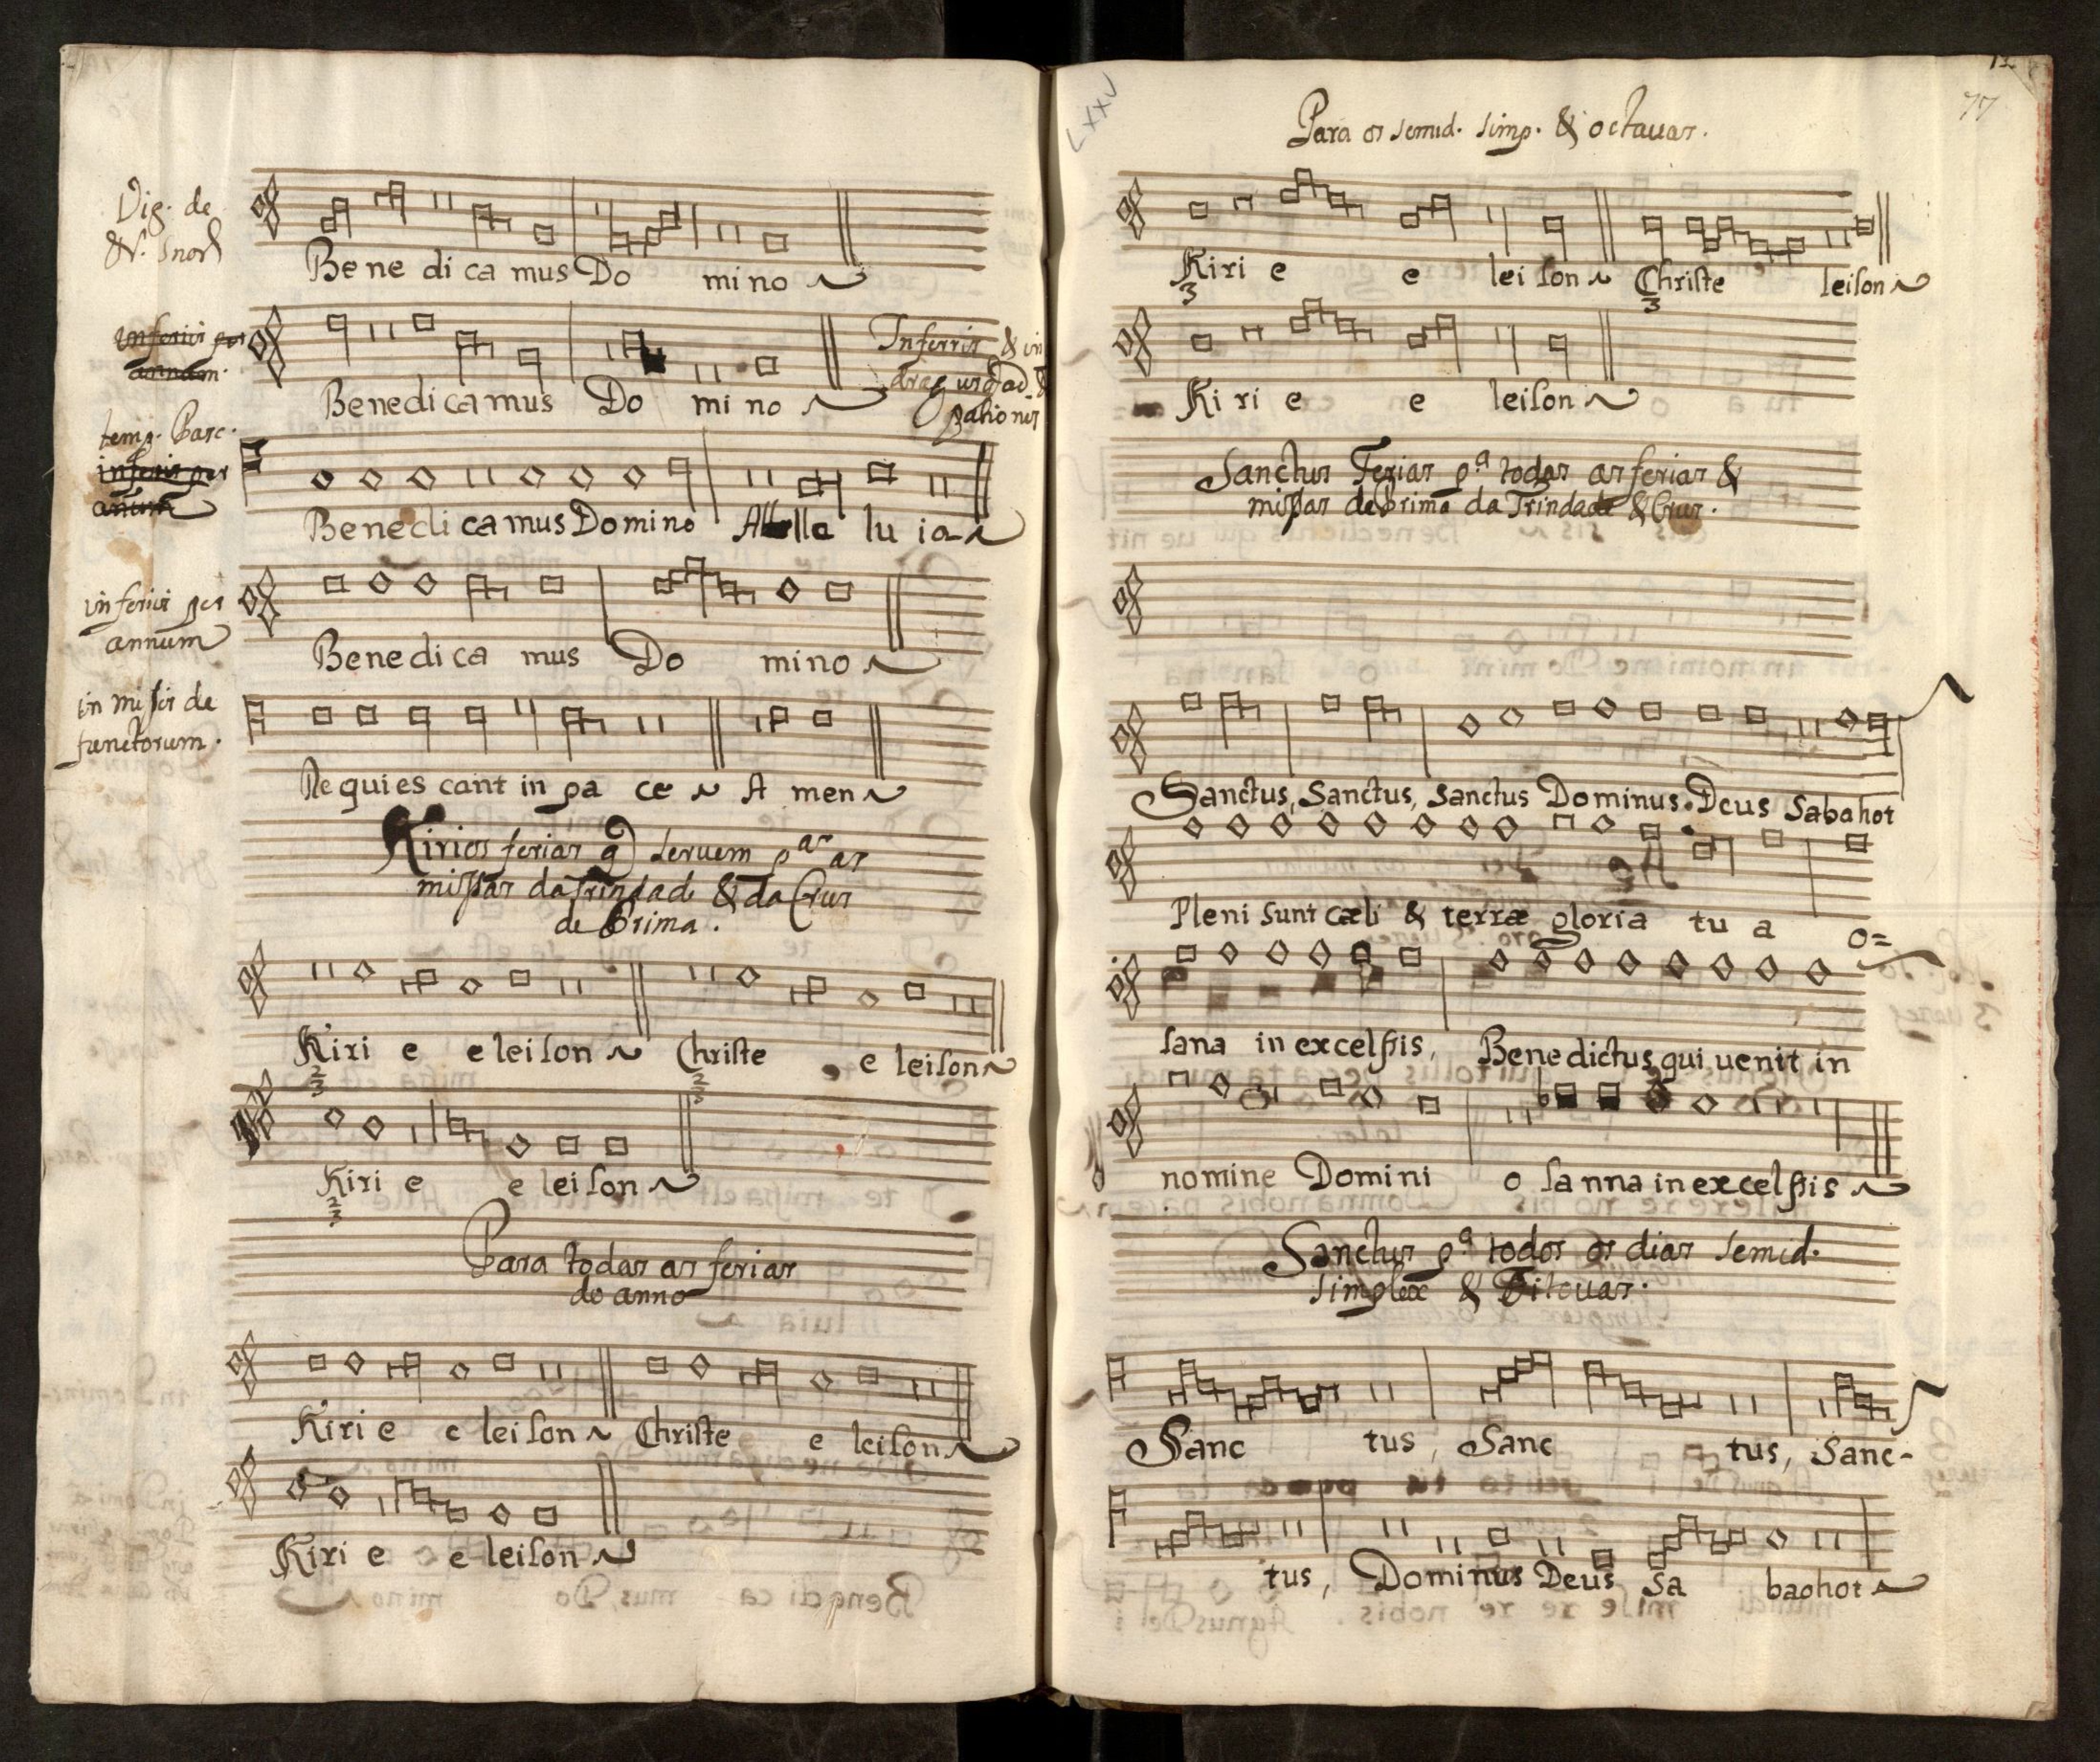 Vig. de
N. Snor
Bene di ca mus Do mi no
in feriis per
annum.
Benedi ca mus Do mi no
In ferris & in
temp. Pasc.
in feriis per
annum
Benedi camus Domino Alle lu ia
in feriis per
annum
Benedi ca mus Do mino
in missis de
functorum.
Re qui es cant in pa ce A men
Kirios ferias q seruem pas as
missas da Trindade & da Crus
de Prima.
Kiri e e leison Christe e leison
Kiri e e lei son
Para todas as ferias
do anno
Kiri e e lei son Christe e leison
Kiri e e leison
LXXV
77
Para os semid. simp. & octauas.
Kiri e e lei son Christe leison
3 3
Ki ri e e leison
Sanctus Ferias pª todas as ferias &
missas de Prima da Trindade & Crus.
Sanctus, Sanctus, Sanctus Dominus Deus Sabahot
Pleni sunt cæli & terræ gloria tu a o=
sana in excelsis, Benedictus qui uenit in
nomine Domini o sanna in excelsis
Sanctus pª todos os dias semid.
simplex & Oitouas.
Sanc tus, Sanc tus, Sanc-
tus, Dominus Deus Sa baohot